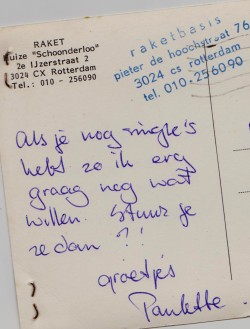 RAKET
uize "Schoonderloo"
2e IJzerstraat 2
3024 CX Rotterdam
Tel.: 010 - 256090
raketbasis
pieter de hoochstraat 76
3024 cs rotterdam
tel. 010-256090
Als je nog single's
hebt zo ik erg
graag nog wat
willen. Stuur je
ze dan ?!
groetjes
Paulette.